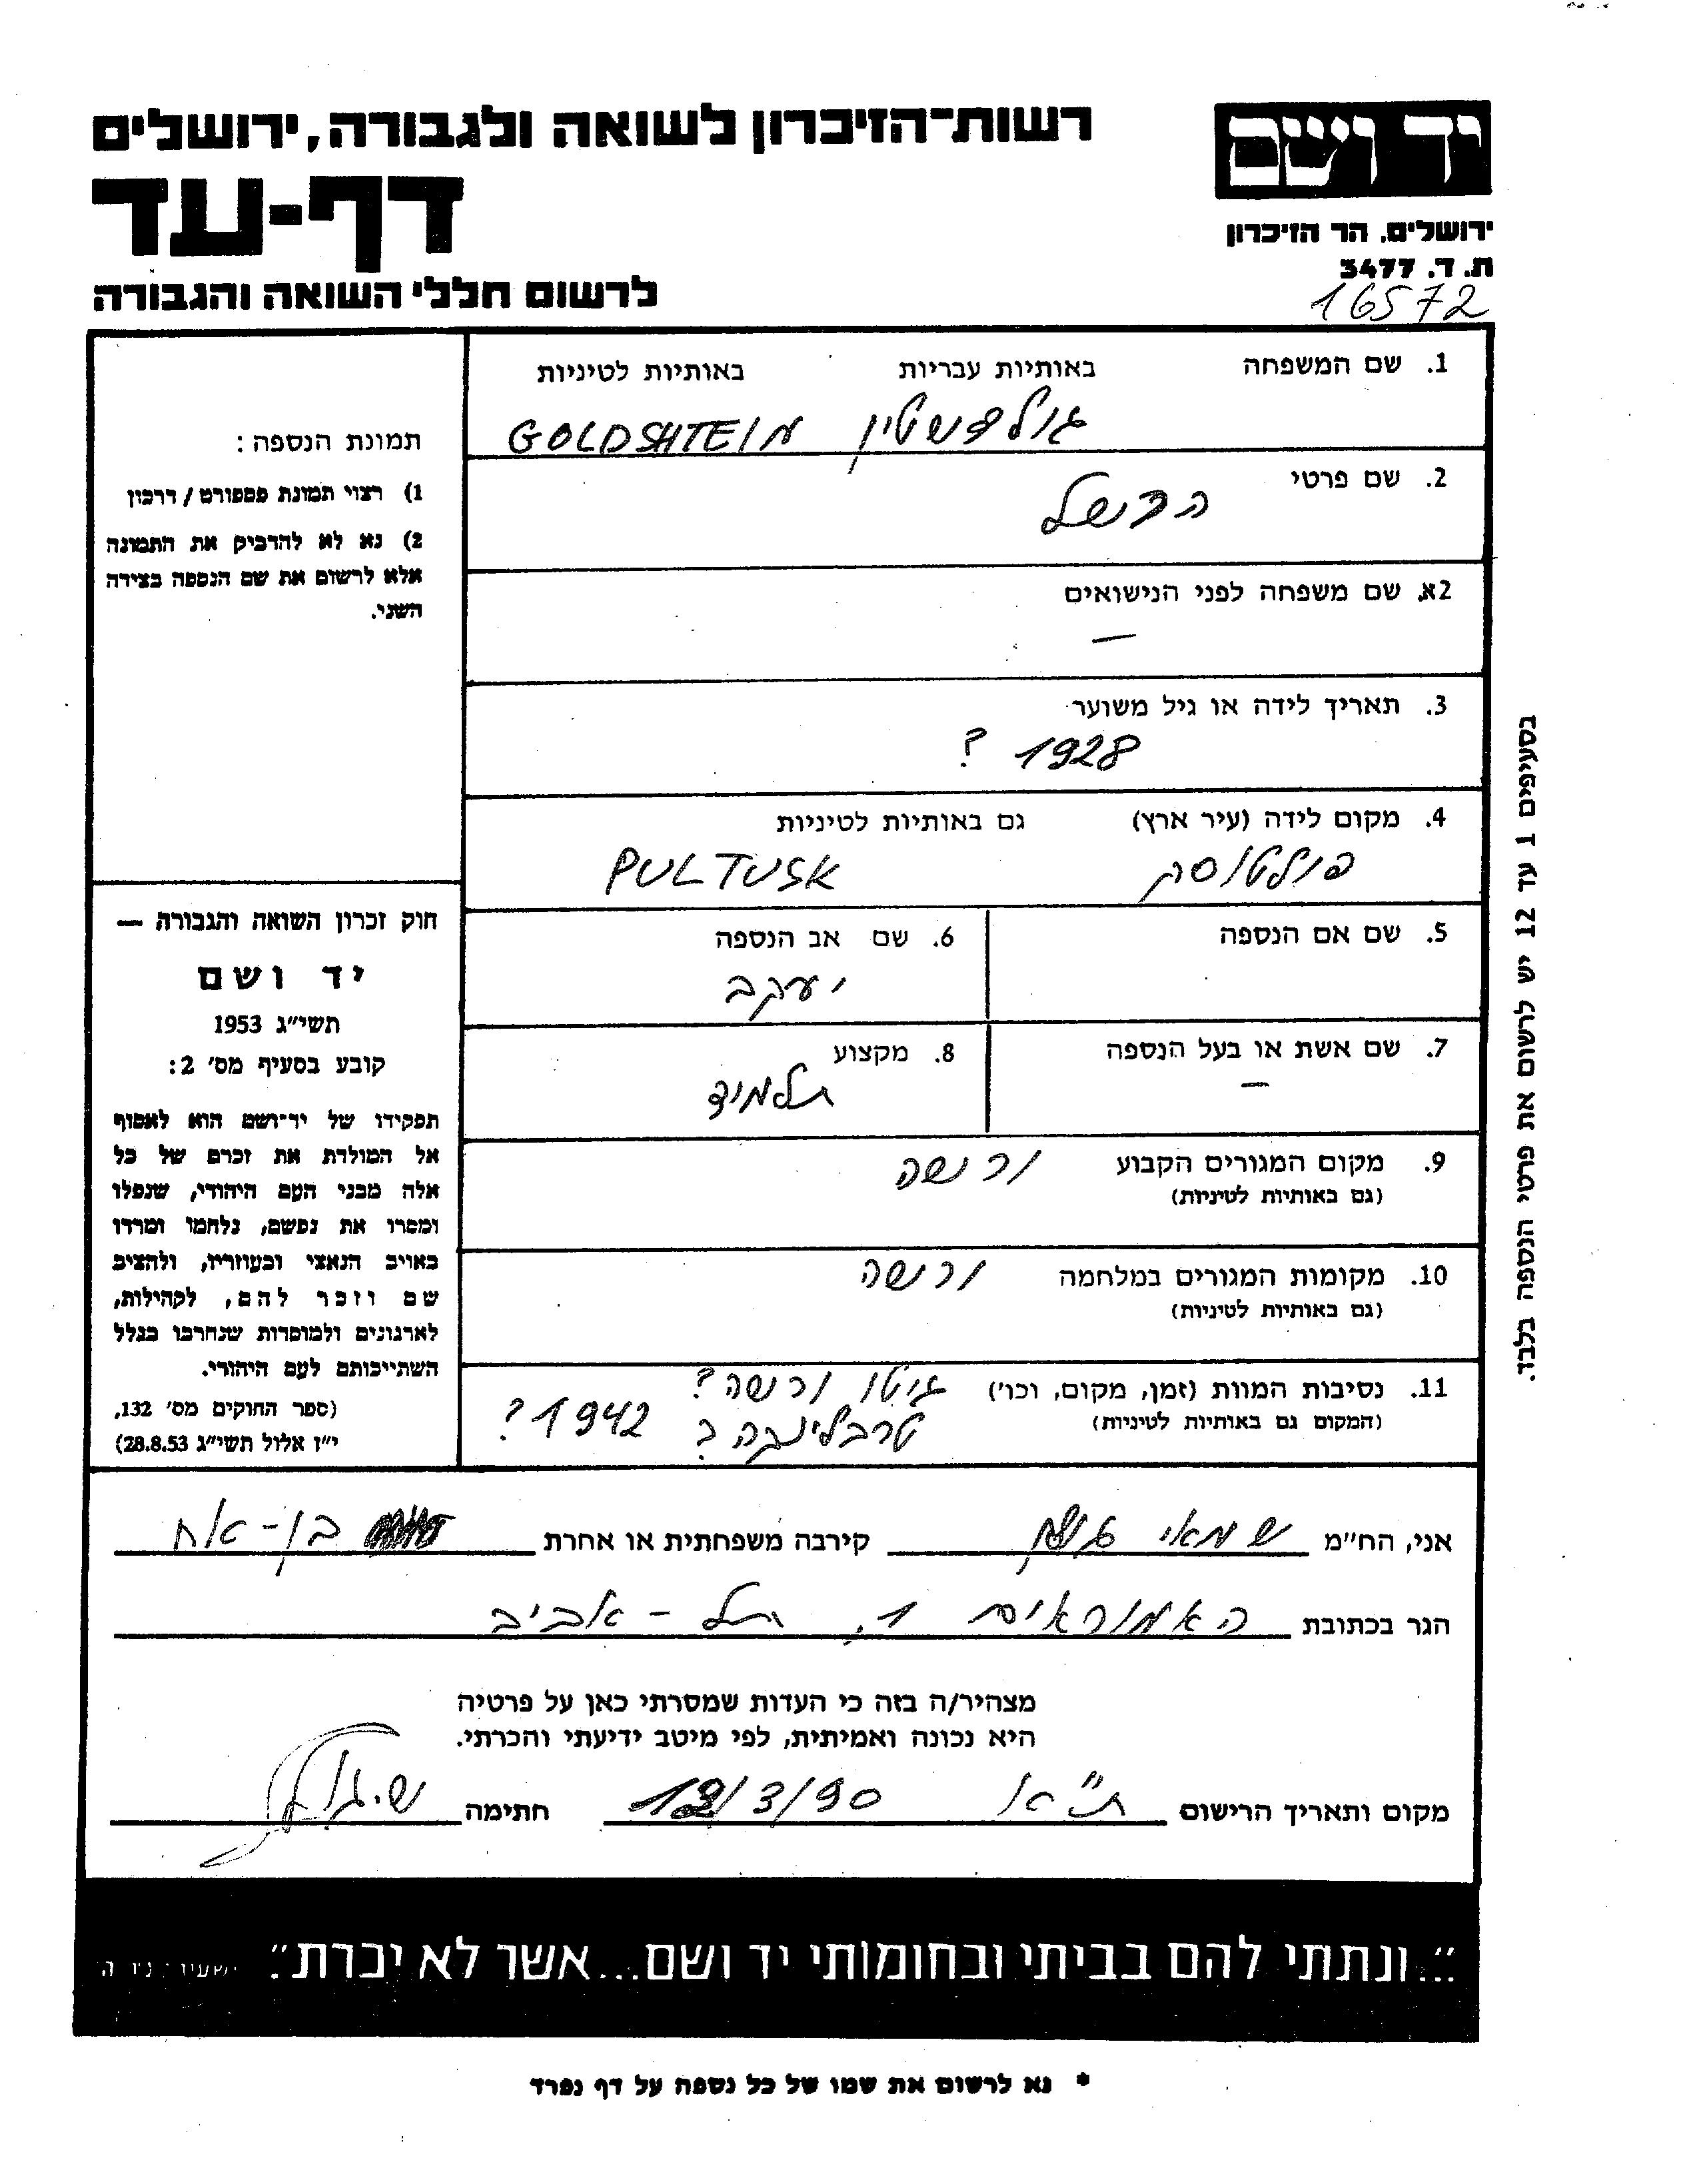 יד ושם
רשות־הזיכרון לשואה ולגבורה, ירושלים
דף-עד
לרשום חללי השואה והגבורה
ירושלים, הר הזיכרון
ת. ד. 3477
16572
1. שם המשפחה באותיות עבריות באותיות לטיניות
גולדשטין GOLDSHTEIN
2. שם פרטי
הרשל
2א. שם משפחה לפני הנישואים
—
3. תאריך לידה או גיל משוער
1928 ?
4. מקום לידה (עיר ארץ) גם באותיות לטיניות
פולטוסק PULTUSK
5. שם אם הנספה
6. שם אב הנספה
יעקב
7. שם אשת או בעל הנספה
—
8. מקצוע
תלמיד
9. מקום המגורים הקבוע ורשה
(גם באותיות לטיניות)
10. מקומות המגורים במלחמה ורשה
(גם באותיות לטיניות)
11. נסיבות המוות (זמן, מקום, וכו') גיטו ורשה?
(המקום גם באותיות לטיניות) טרבלינקה ? 1942?
תמונת הנספה:
1) רצוי תמונת פספורט / דרכון
2) נא לא להדביק את התמונה
אלא לרשום את שם הנספה בצידה
השני.
חוק זכרון השואה והגבורה —
יד ושם
תשי"ג 1953
קובע בסעיף מס' 2:
תפקידו של יד־ושם הוא לאסוף
אל המולדת את זכרם של כל
אלה מבני העם היהודי, שנפלו
ומסרו את נפשם, נלחמו ומרדו
באויב הנאצי ובעוזריו, ולהציב
שם וזכר להם, לקהילות,
לארגונים ולמוסדות שנחרבו בגלל
השתייכותם לעם היהודי.
(ספר החוקים מס' 132,
י"ז אלול תשי"ג 28.8.53)
בסעיפים 1 עד 12 יש לרשום את פרטי הנספה בלבד.
אני, הח"מ שמאי קירבה משפחתית או אחרת בן-אח
הגר בכתובת האמוראים 1, תל-אביב
מצהיר/ה בזה כי העדות שמסרתי כאן על פרטיה
היא נכונה ואמיתית, לפי מיטב ידיעתי והכרתי.
מקום ותאריך הרישום ת"א 12/3/90 חתימה
"...ונתתי להם בביתי ובחומותי יד ושם...אשר לא יכרת". ישעיהו נ"ו ה
* נא לרשום את שמו של כל נספה על דף נפרד